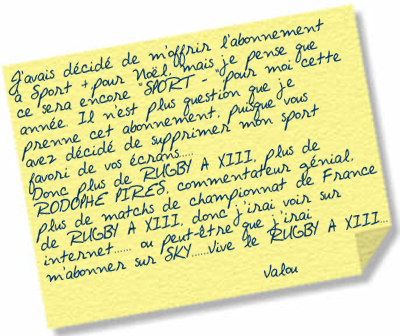 J'avais décidé de m'offrir l'abonnement
à Sport + pour Noël, mais je pense que
ce sera encore "SPORT - " pour moi cette
année. Il n'est plus question que je
prenne cet abonnement, puisque vous
avez décidé de supprimer mon sport
favori de vos écrans.....
Donc plus de RUGBY A XIII, plus de
RODOPHE PIRES, commentateur génial,
plus de matchs de championnat de France
de RUGBY A XIII, donc j'irai voir sur
internet...... ou peut-être que j'irai
m'abonner sur SKY......Vive le RUGBY A XIII...
Valou